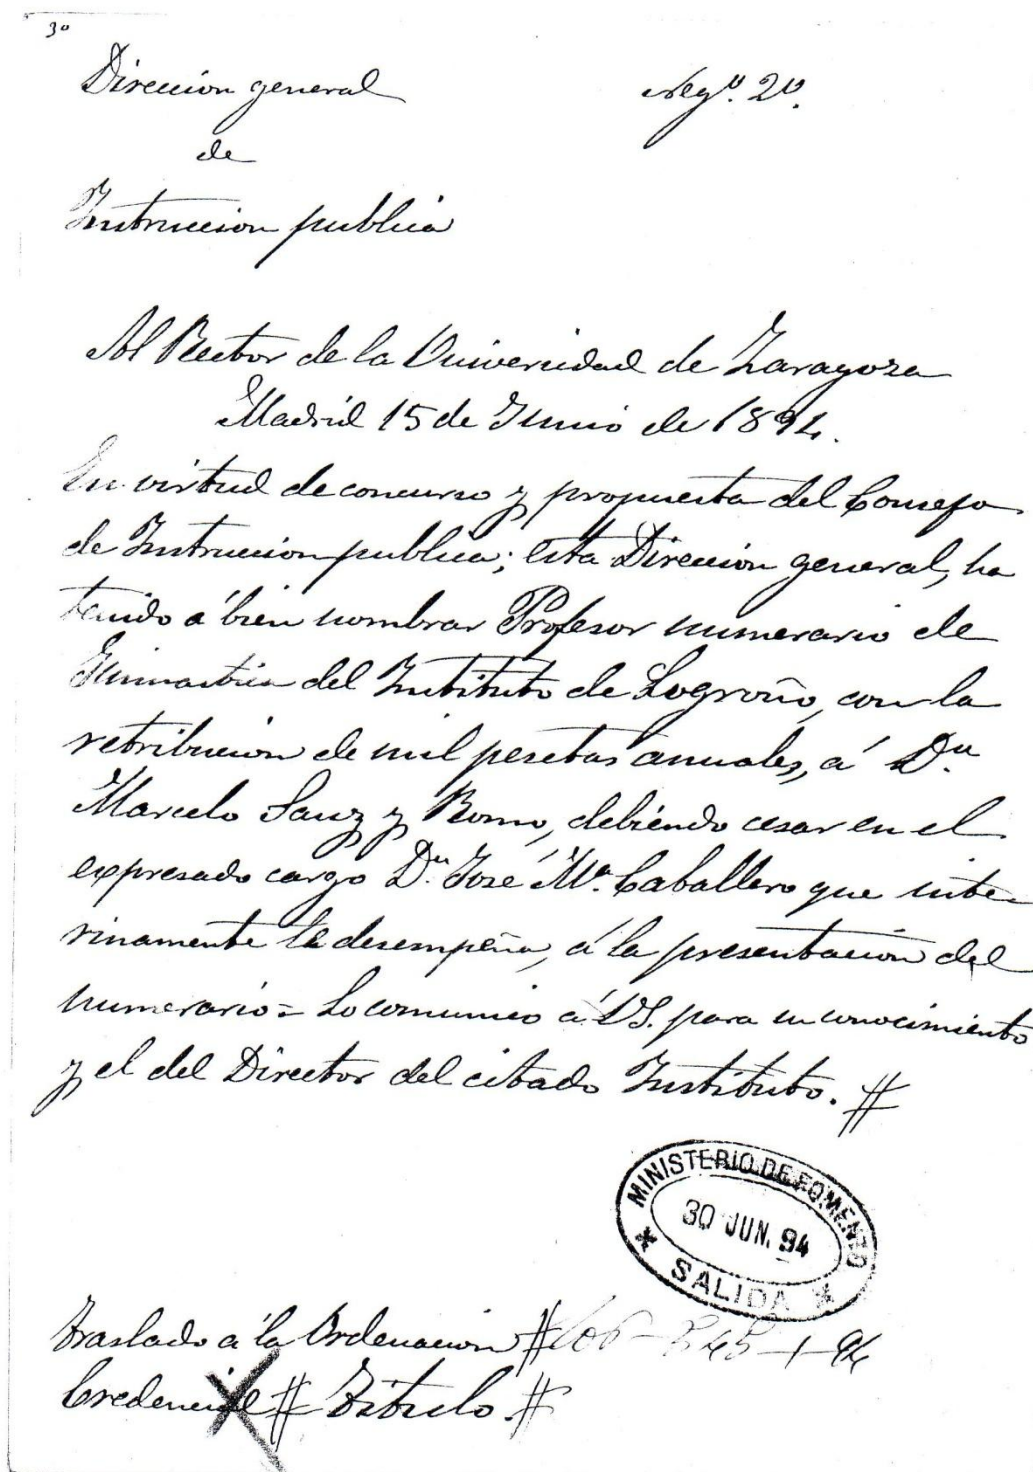 30
Direccion general
Negº. 2º.
de
Instruccion publica
Al Rector de la Universidad de Zaragoza
Madrid 15 de Junio de 1894.
En virtud de concurso y propuesta del Consejo
de Instruccion publica; esta Direccion general, ha
tenido á bien nombrar Profesor numerario de
Gimnastica del Instituto de Logroño, con la
retribucion de mil pesetas anuales, á Dn.
Marcelo Sanz y Romo, debiendo cesar en el
expresado cargo Dn. José Mª. Caballero que inte-
rinamente le desempeña, á la presentacion del
numerario = Lo comunico á V.S. para su conocimiento
y el del Director del citado Instituto. #
MINISTERIO DE FOMENTO
30 JUN. 94
* SALIDA *
Traslado á la Ordenacion #
Credencial # Titulo. #